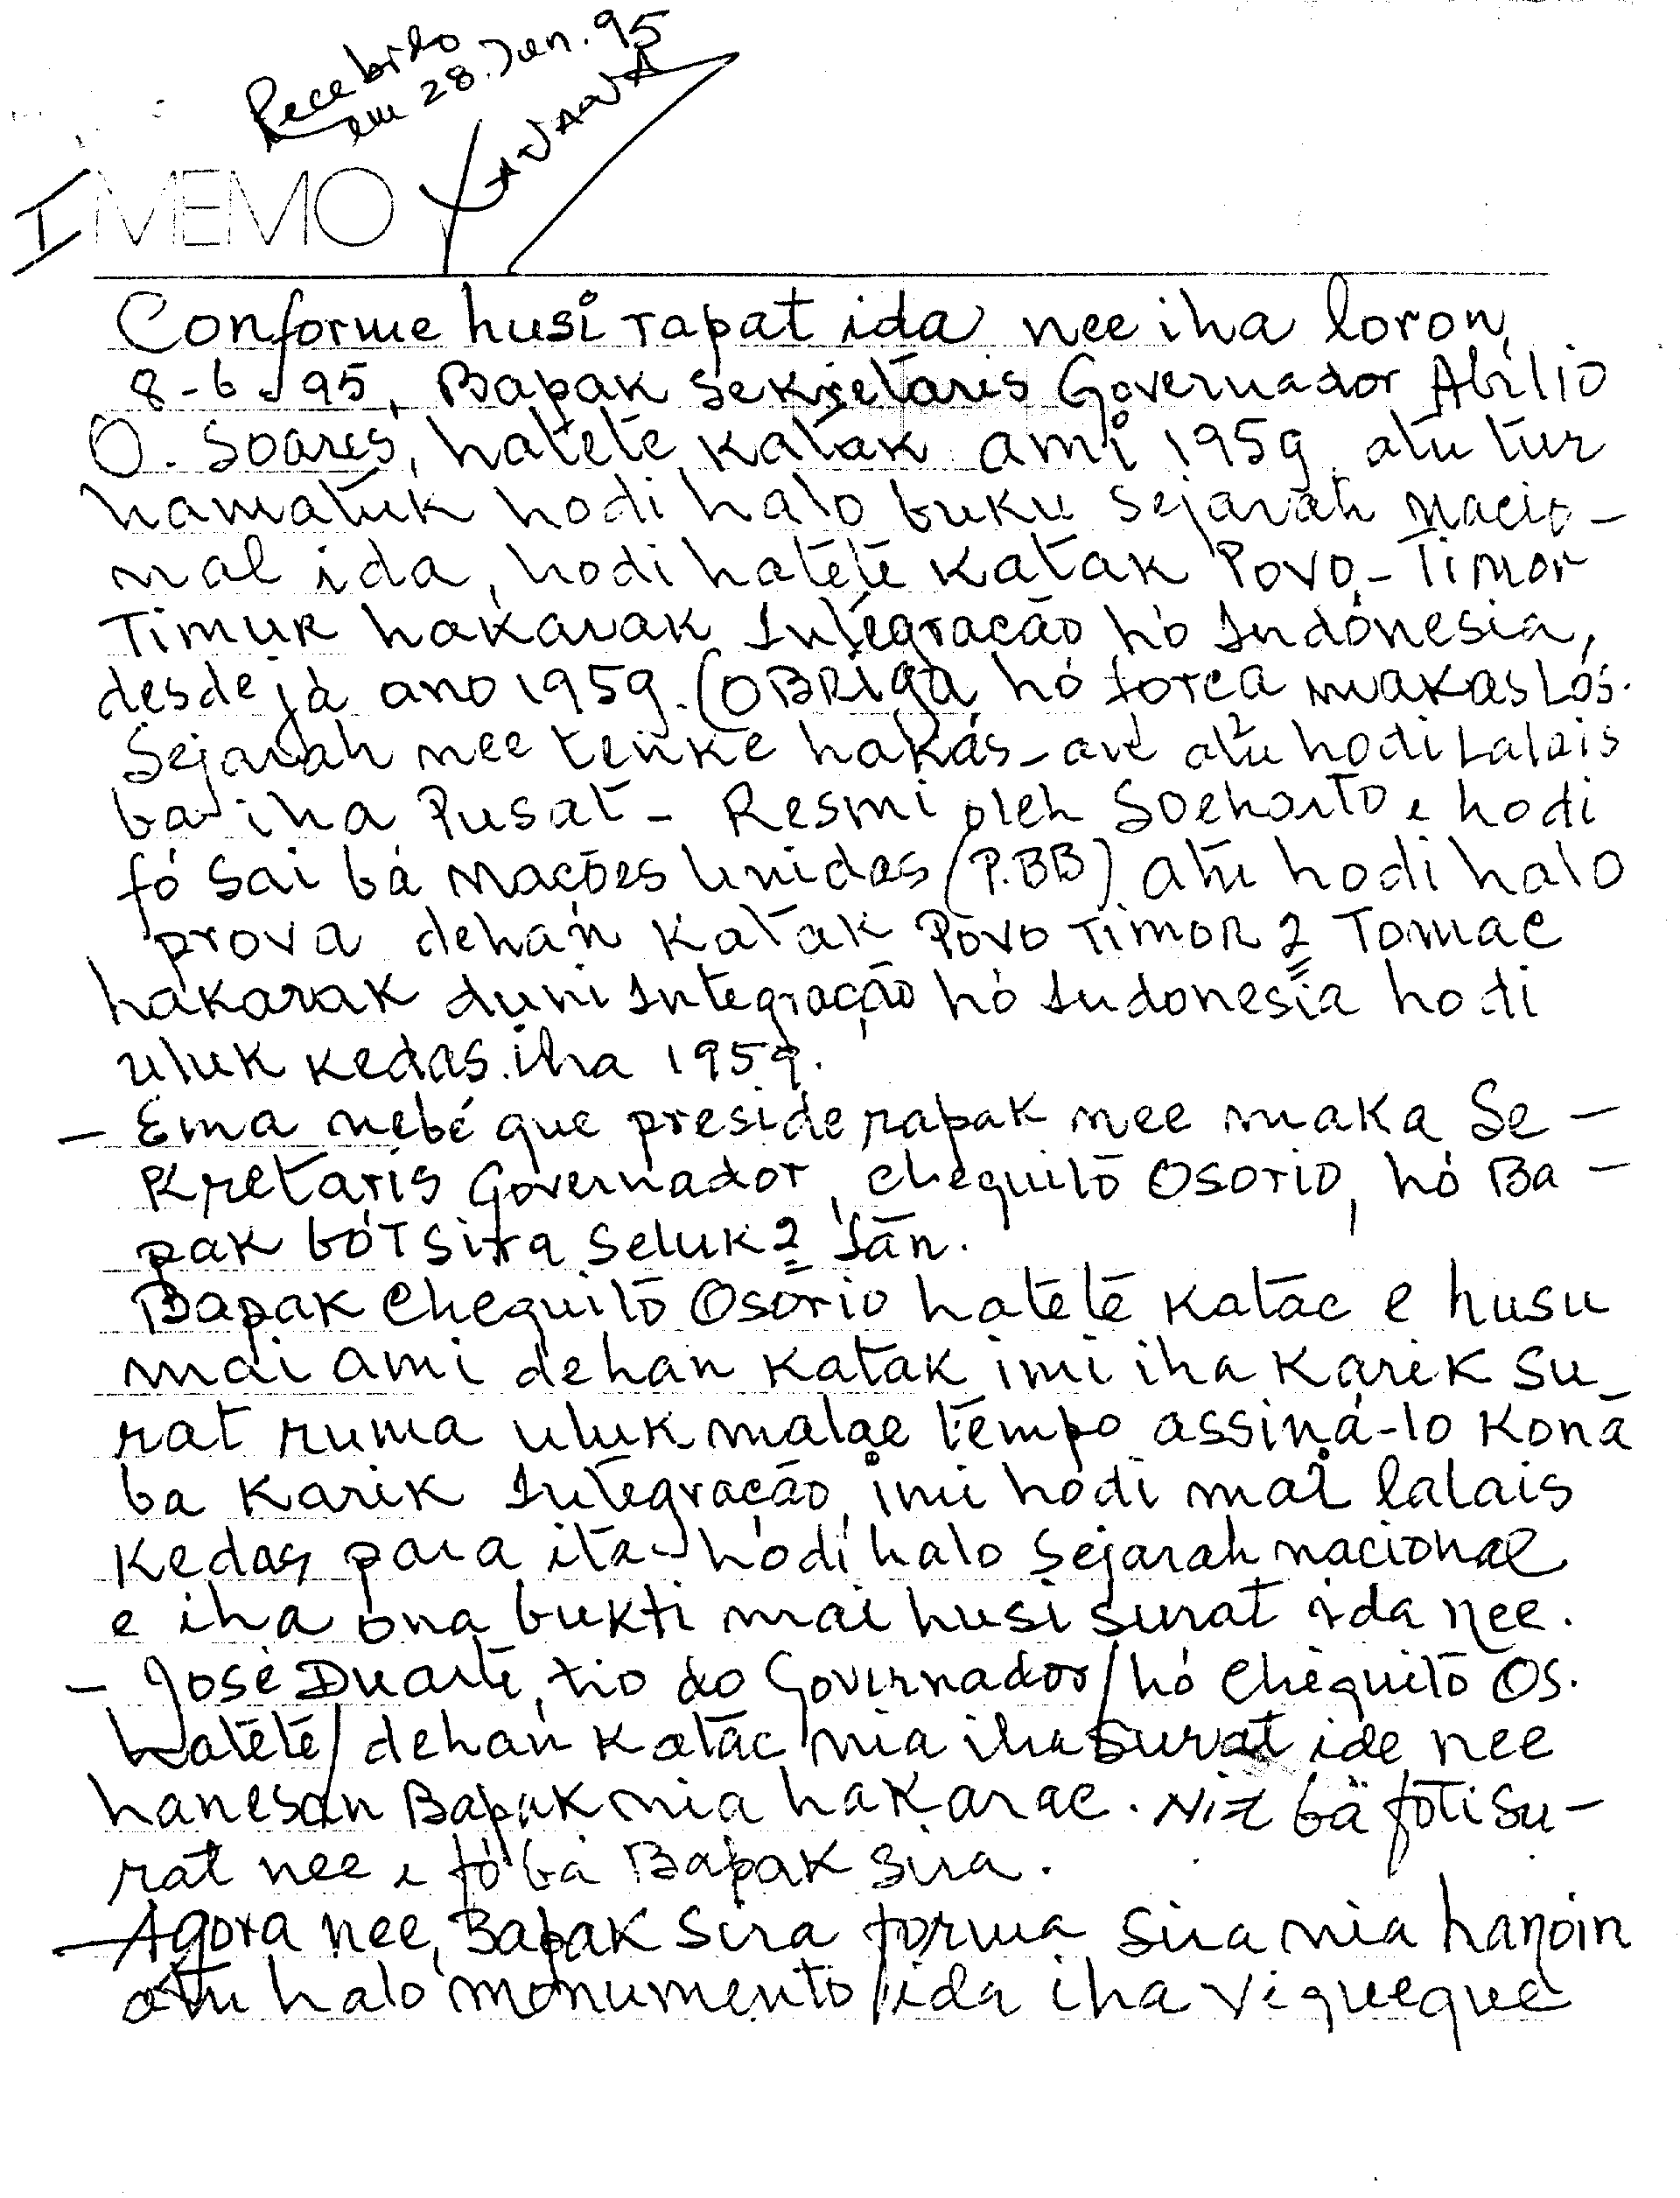 Recebido
em 28.Jun.95
XANANA
I MEMO
Conforme husi rapat ida nee iha loron
8-6-95, Bapak Sekretaris Governador Abílio
O. Soares, hatete katak ami 1959 atu tur
hamatuk hodi halo buku sejarah nacio-
nal ida, hodi hatete katak Povo-Timor
Timur hakarak Integração hó Indónesia,
desde já ano 1959. (OBRIga hó forca makas Lós.
Sejarah nee tenke hakás- 'atu hodi Lalais
bá iha Pusat - Resmi oleh Soeharto e hodi
fó sai bá Nações Unidas (P.BB) atu hodi halo
prova dehan katak Povo Timor 2 Tomac
hakarak duni Integração hó Indonesia hodi
uluk kedas iha 1959.
- Ema nebé que preside rapak nee maka Se-
kretaris Governador, Chequito Osorio, hó Ba-
pak bót sira seluk 2 tān.
Bapak Chequitō Osório hatete katāc e husu
mai ami dehan katak imi iha karik su-
rat ruma uluk malae tempo assiná-lo konā
ba karik Integração, imi hodi mai lalais
kedas para ita hodi halo sejarah nacional
e iha ona bukti mai husi surat ida nee.
- José Duarte, tio do Governador/hó Chequitō Os.
hatete/dehan katāc nia iha surat ide nee
hanesan Bapak nia hakarac. Nia bä foti su-
rat nee e fó bá Bapak sira.
- Agora nee, Bapak sira forma sira nia hanoin
atu halo monumento/ida iha Viqueque